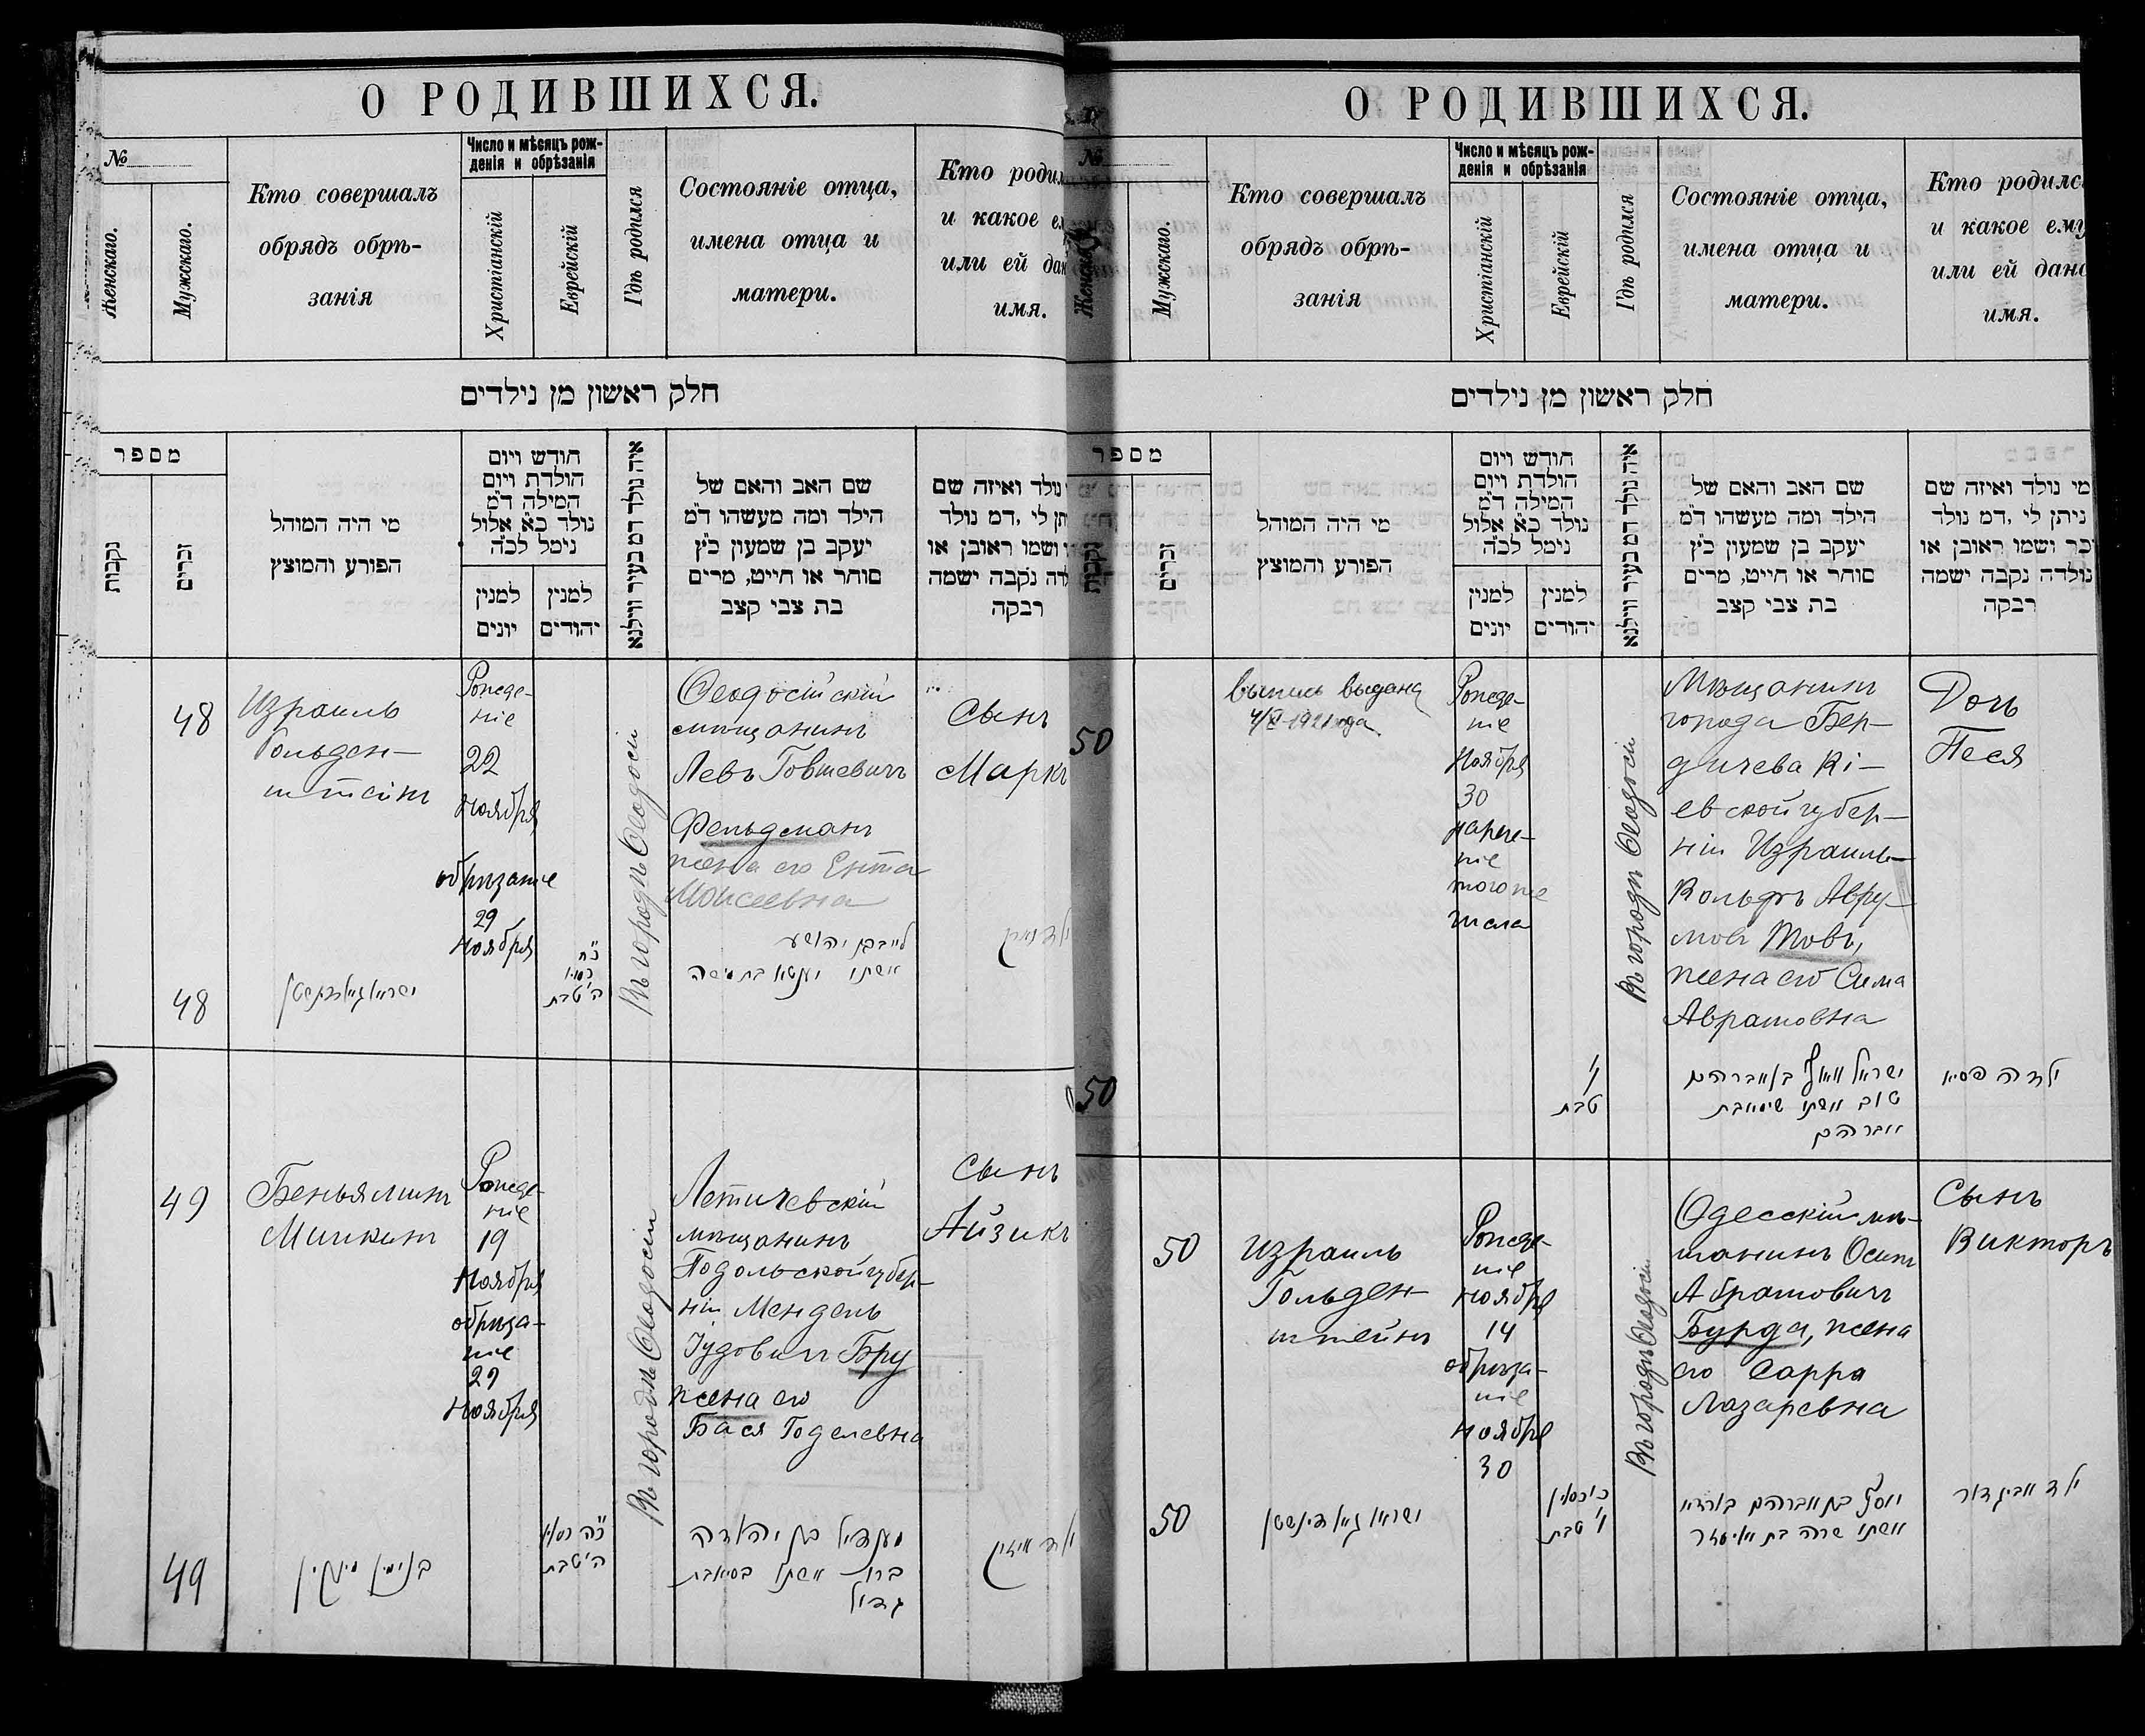 О РОДИВШИХСЯ.
№
Женскаго.
Мужскаго.
Кто совершалъ
обрядъ обрѣ-
занія
Число и мѣсяцъ рож-
денія и обрѣзанія
Христіанскій
Еврейскій
Гдѣ родился
Состояніе отца,
имена отца и
матери.
Кто родил
и какое ем
или ей дан
имя.
חלק ראשון מן נילדים
מספר
נקבות
זכרים
מי היה המוהל
הפורע והמוצץ
חודש ויום
הולדת ויום
המילה ד״מ
נולד כ״א אלול
נימל לכ״ה
למנין
יונים
למנין
יהודים
איה נולד דמ בעיר ווילנא
שם האב והאם של
הילד ומה מעשהו ד״מ
יעקב בן שמעון כ״ץ
סוחר או חייט, מרים
בת צבי קצב
נולד ואיזה שם
תן לי, דמ נולד
ושמו ראובן או
לדה נקבה ישמה
רבקה
48
Израиль
Гольден-
штейнъ
Рожде-
ніе
22
Ноября
обрѣзаніе
29
Ноября
Въ городѣ Ѳеодосіи
Ѳеодосійскій
мѣщанинъ
Левъ Говшевичъ
Фельдманъ
жена его Ента
Моисеевна
Сынъ
Маркъ
48
ה׳ טבת
אשתו יענטא בת משה
49
Беньяминъ
Минкинъ
Рожде-
ніе
19
Ноября
обрѣза-
ніе
29
Ноября
Въ городѣ Ѳеодосіи
Летичевскій
мѣщанинъ
Подольской губер-
ніи Мендель
Іудовичъ Бру
жена его
Бася Годелевна
Сынъ
Айзикъ
49
בנימין מינקין
כ״ה כסלו
ה׳ טבת
מענדיל בן יהודה
ברו אשתו בסיא בת
גדיל
О РОДИВШИХСЯ.
№
Женскаго
Мужскаго.
Кто совершалъ
обрядъ обрѣ-
занія
Число и мѣсяцъ рож-
денія и обрѣзанія
Христіанскій
Еврейскій
Гдѣ родился
Состояніе отца,
имена отца и
матери.
Кто родилс
и какое ему
или ей дано
имя.
חלק ראשון מן נילדים
מספר
נקבות
זכרים
מי היה המוהל
הפורע והמוצץ
חודש ויום
הולדת ויום
המילה ד״מ
נולד כ״א אלול
נימל לכ״ה
למנין
יונים
למנין
יהודים
איה נולד דמ בעיר ווילנא
שם האב והאם של
הילד ומה מעשהו ד״מ
יעקב בן שמעון כ״ץ
סוחר או חייט, מרים
בת צבי קצב
מי נולד ואיזה שם
ניתן לי, דמ נולד
זכר ושמו ראובן או
נולדה נקבה ישמה
רבקה
50
выпись выдана
Рожде-
ніе
Ноября
30
нарече-
ніе
того же
числа
Въ городѣ Ѳеодосіи
Мѣщанинъ
города Бер-
дичева Кі-
евской губер-
ніи Израиль-
Вольфъ Авру-
мовъ Товъ,
жена его Сима
Аврамовна
Дочь
Песя
50
טבת
ישראל וואלף בן אברהם
טוב אשתו שימא בת
אברהם
ילדה פסיא
50
Израиль
Гольден-
штейнъ
Рожде-
ніе
Ноября
14
обрѣза-
ніе
Ноября
30
Въ городѣ Ѳеодосіи
Одесскій мѣ-
щанинъ Осипъ
Абрамовичъ
Бурда, жена
его Сарра
Лазаревна
Сынъ
Викторъ
50
ו׳ טבת
יוסף בן אברהם בורדא
אשתו שרה בת אליעזר
ילד אביגדור